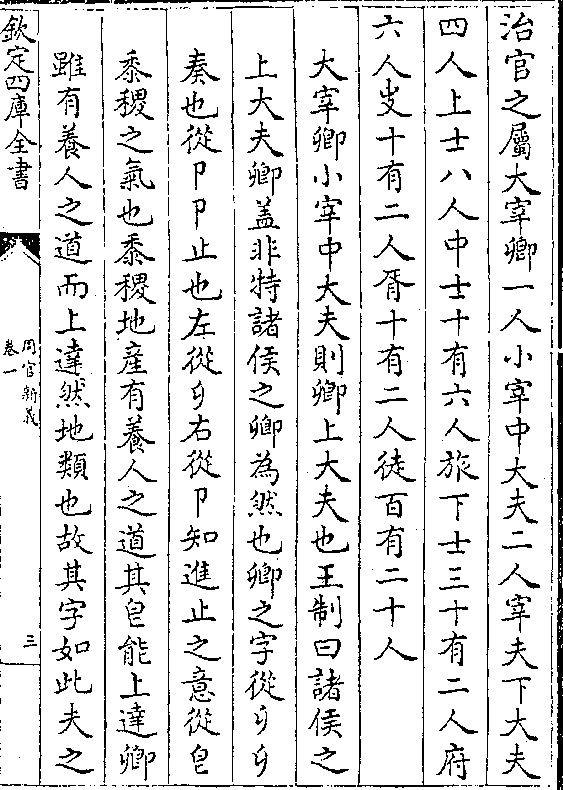 治官之屬大宰卿一人小宰中大夫二人宰夫下大夫
四人上士八人中士十有六人旅下士三十有二人府
六人史十有二人胥十有二人徒百有二十人
大宰卿小宰中大夫則卿上大夫也王制曰諸侯之
上大夫卿盖非特諸侯之卿為然也卿之字從𠂎𠂎
奏也從卪卪止也左從𠂎右從卪知進止之意從皀
黍稷之氣也黍稷地産有養人之道其皀能上達卿
雖有養人之道而上達然地類也故其字如此夫之
欽定四庫全書
周官新義
卷一
三